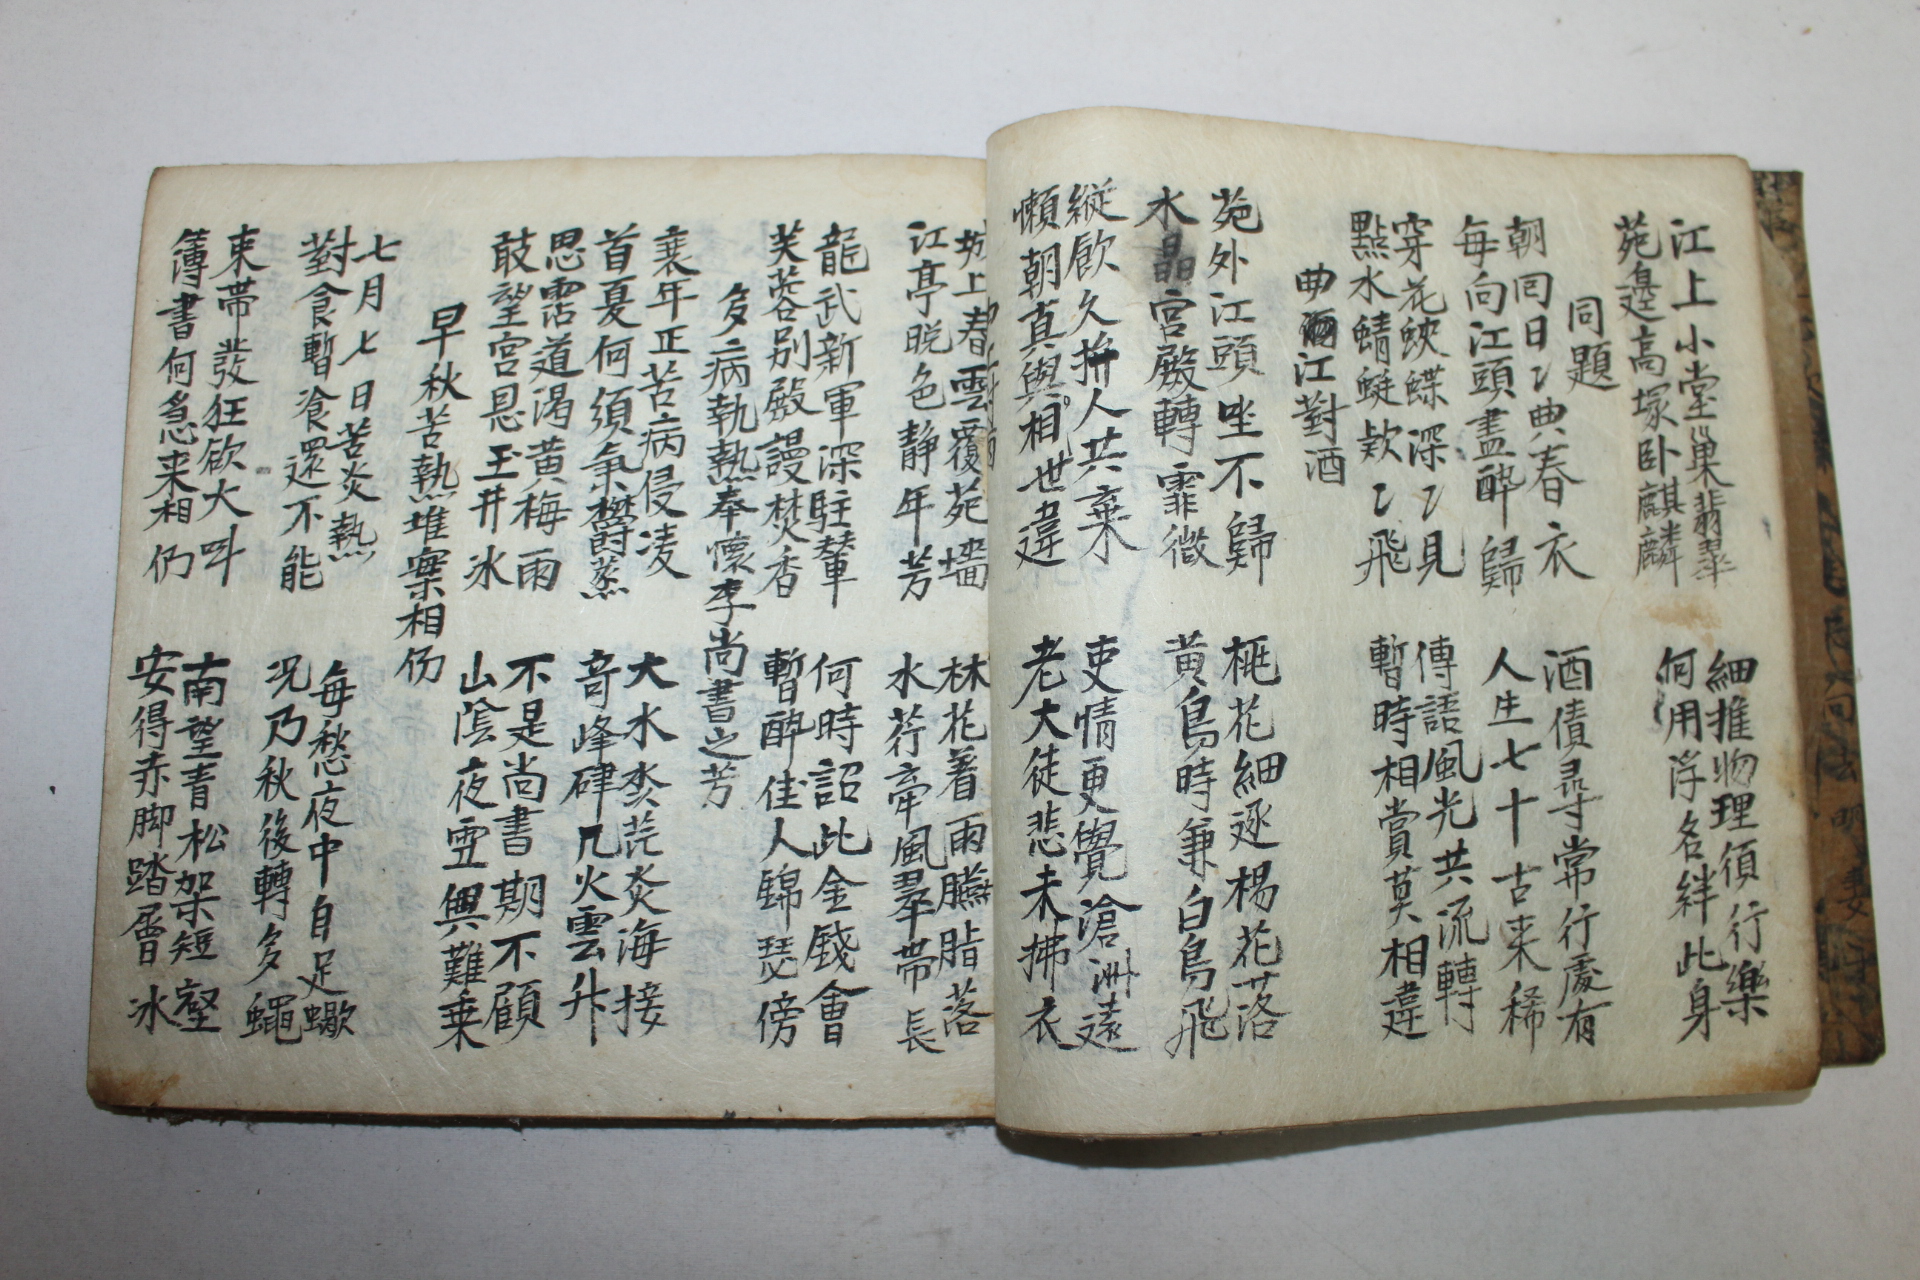 江上小堂巢翡翠
苑邊高塚卧麒麟
細推物理須行樂
何用浮名絆此身
同題
朝囘日〻典春衣
每向江頭盡醉歸
酒債尋常行處有
人生七十古来稀
穿花蛺蝶深〻見
點水蜻蜓欵〻飛
傳語風光共流轉
暫時相賞莫相違
曲江對酒
苑外江頭坐不歸
水晶宮殿轉霏微
桃花細逐楊花落
黃鳥時兼白鳥飛
縱飮久拚人共棄
懶朝真與相世違
吏情更覺滄洲遠
老大徒悲未拂衣
城上春雲覆苑墻
江亭晚色靜年芳
林花着雨臙脂落
水荇牽風翠帶長
龍武新軍深駐輦
芙蓉別殿謾焚香
何時詔此金錢會
暫醉佳人錦瑟傍
多病執熱奉懷李尚書之芳
衰年正苦病侵凌
首夏何須氣欝蒸
大水淼茫炎海接
奇峰硉兀火雲升
思霑道渴黃梅雨
敢望宮恩玉井冰
不是尚書期不顧
山陰夜雪興難乗
早秋苦熱堆案相仍
七月七日苦炎熱
對食暫飡還不能
每愁夜中自足蠍
况乃秋後轉多蠅
束帶發狂欲大呌
簿書何急来相仍
南望青松架短壑
安得赤脚踏層冰